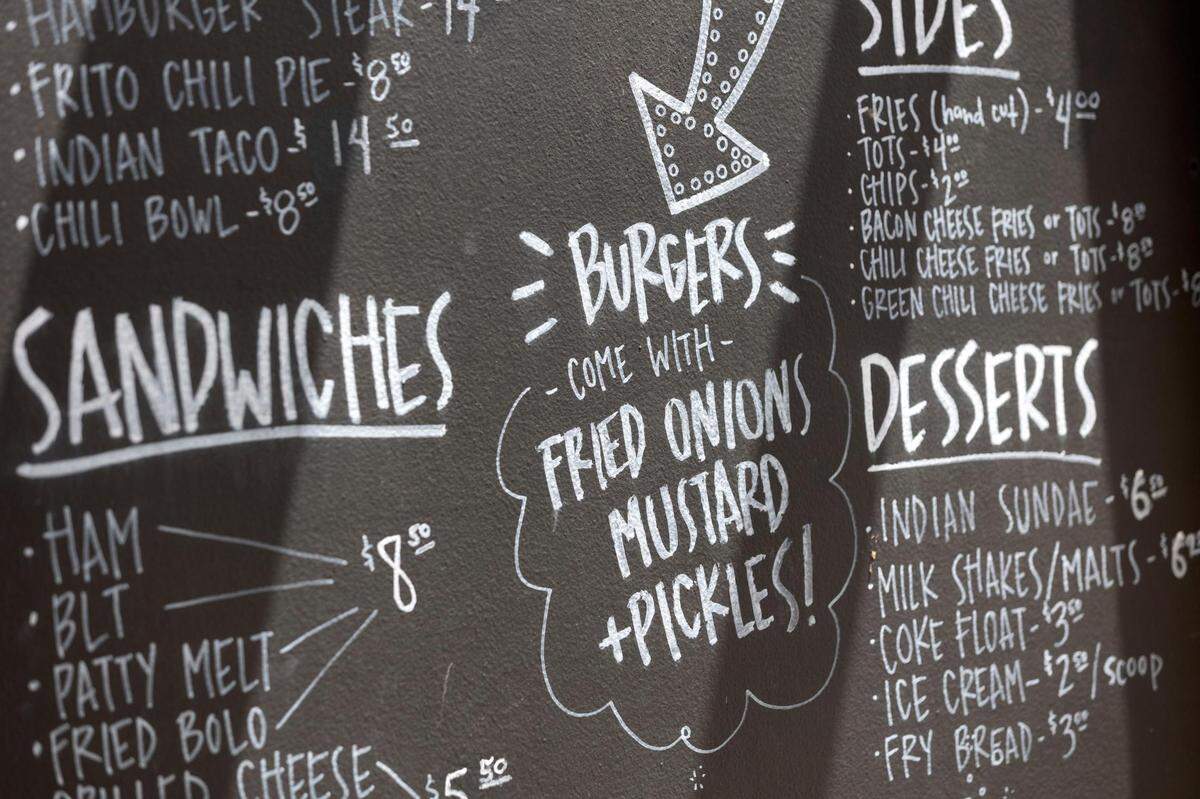 HAMBURGER STEAK - 14
• FRITO CHILI PIE - $8⁵⁰
• INDIAN TACO - $14⁵⁰
• CHILI BOWL - $8⁵⁰
SANDWICHES
• HAM
• BLT
• PATTY MELT
• FRIED BOLO
$8⁵⁰
GRILLED CHEESE
$5⁵⁰
BURGERS
- COME WITH -
FRIED ONIONS
MUSTARD
+PICKLES!
SIDES
• FRIES (hand cut) - $4⁰⁰
• TOTS - $4⁰⁰
• CHIPS - $2⁰⁰
• BACON CHEESE FRIES or TOTS - $8⁰⁰
• CHILI CHEESE FRIES or TOTS - $8⁰⁰
• GREEN CHILI CHEESE FRIES or TOTS - $8
DESSERTS
• INDIAN SUNDAE - $6⁵⁰
• MILK SHAKES/MALTS - $6
• COKE FLOAT - $3⁵⁰
• ICE CREAM - $2⁵⁰/scoop
• FRY BREAD - $3⁰⁰